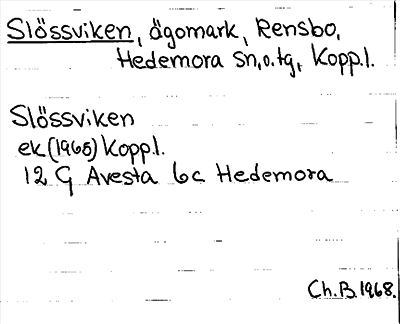 Slössviken, ägomark, Rensbo,
Hedemora sn, o. tg, Kopp.l.
Slössviken
ek (1965) Kopp.l.
12 G Avesta 6c Hedemora
Ch.B. 1968.